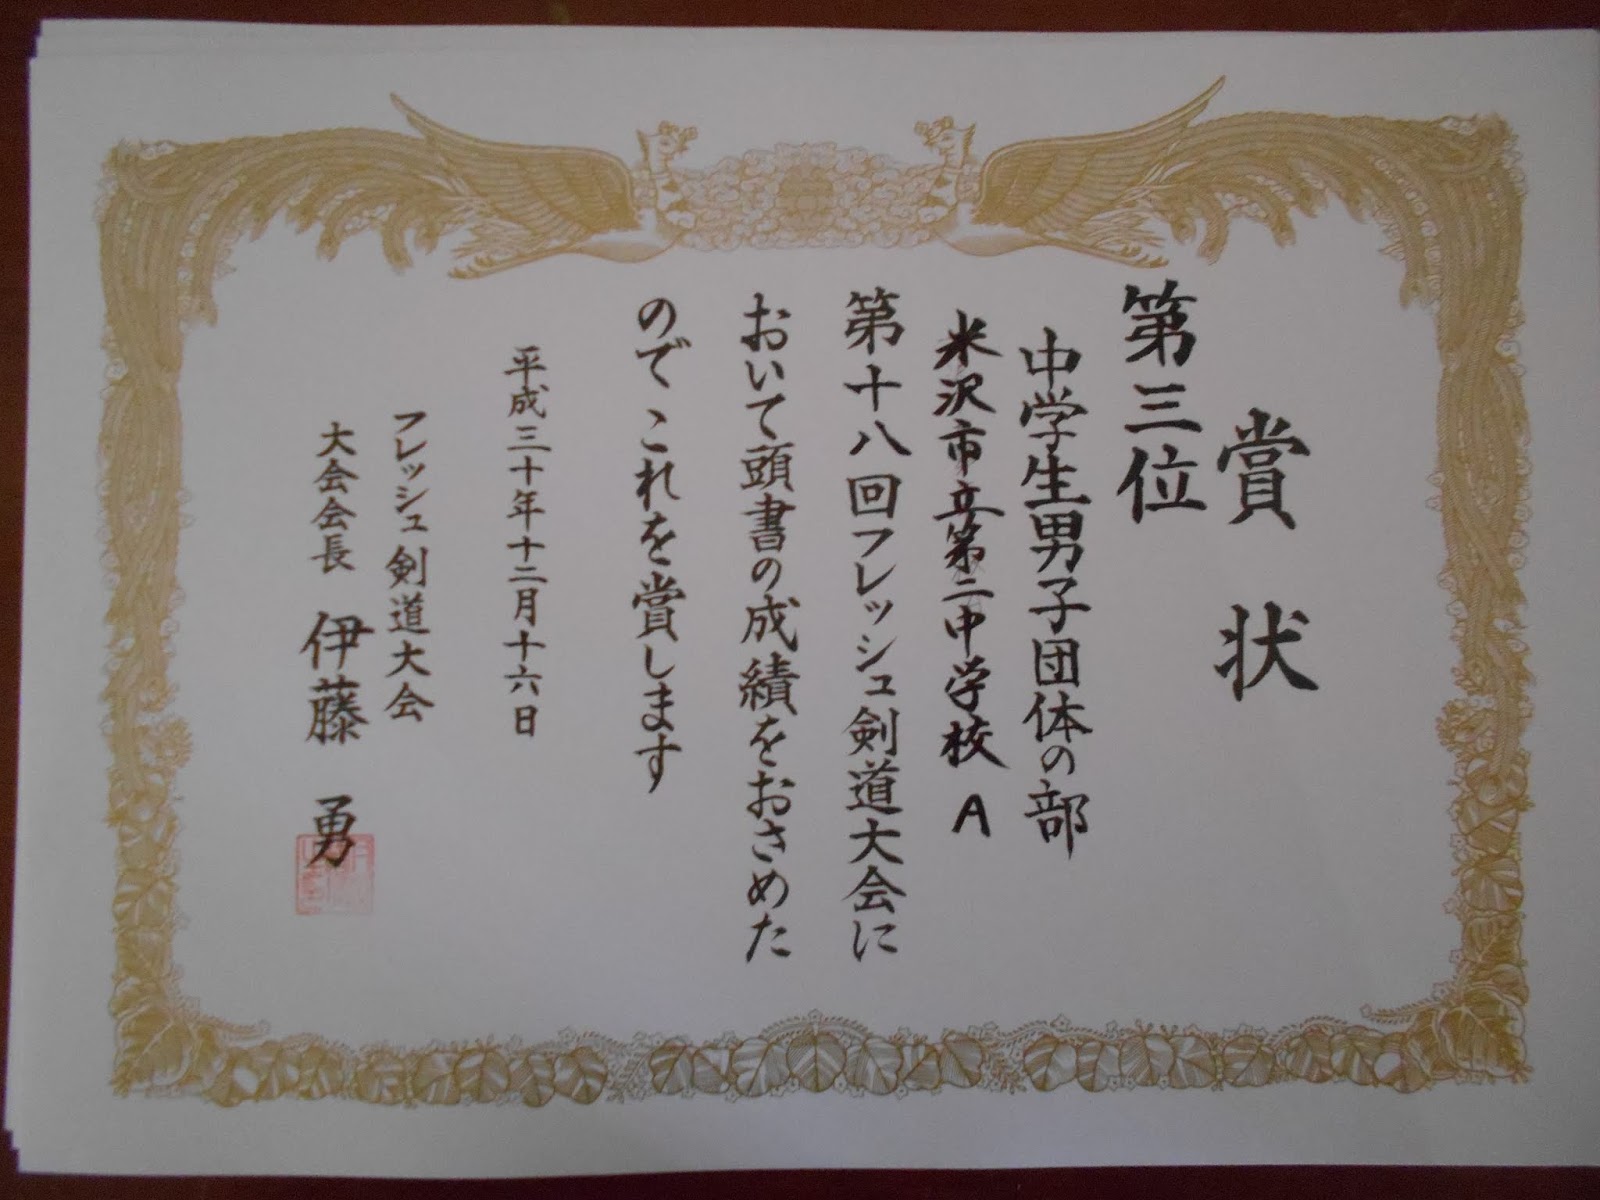 賞状
第三位
中学生男子団体の部
米沢市立第二中学校 A
第十八回フレッシュ剣道大会に
おいて頭書の成績をおさめた
のでこれを賞します
平成三十年十二月十六日
フレッシュ剣道大会
大会会長 伊藤 勇